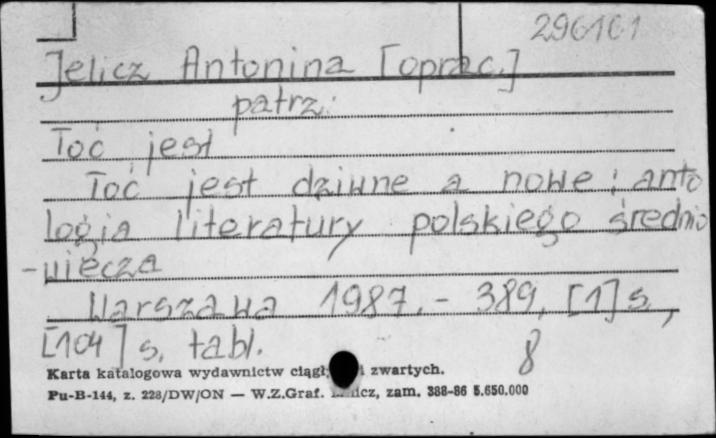 296161
Jelicz Antonina [oprac.]
patrz:
Toć jest
Toć jest dziwne a nowe : anto
logia literatury polskiego średnio
-wiecza
Warszawa 1987. - 389, [1] s.,
[104] s. tabl.
8
Karta katalogowa wydawnictw ciągł i zwartych.
Pu-B-144, z. 228/DW/ON — W.Z.Graf. zam. 388-86 5.650.000